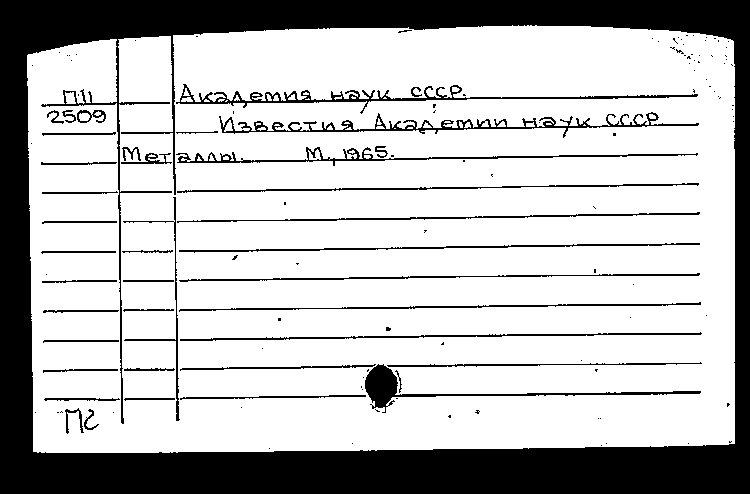 П11 Академия наук СССР.
2509 Известия Академии наук СССР
Металлы. М., 1965.